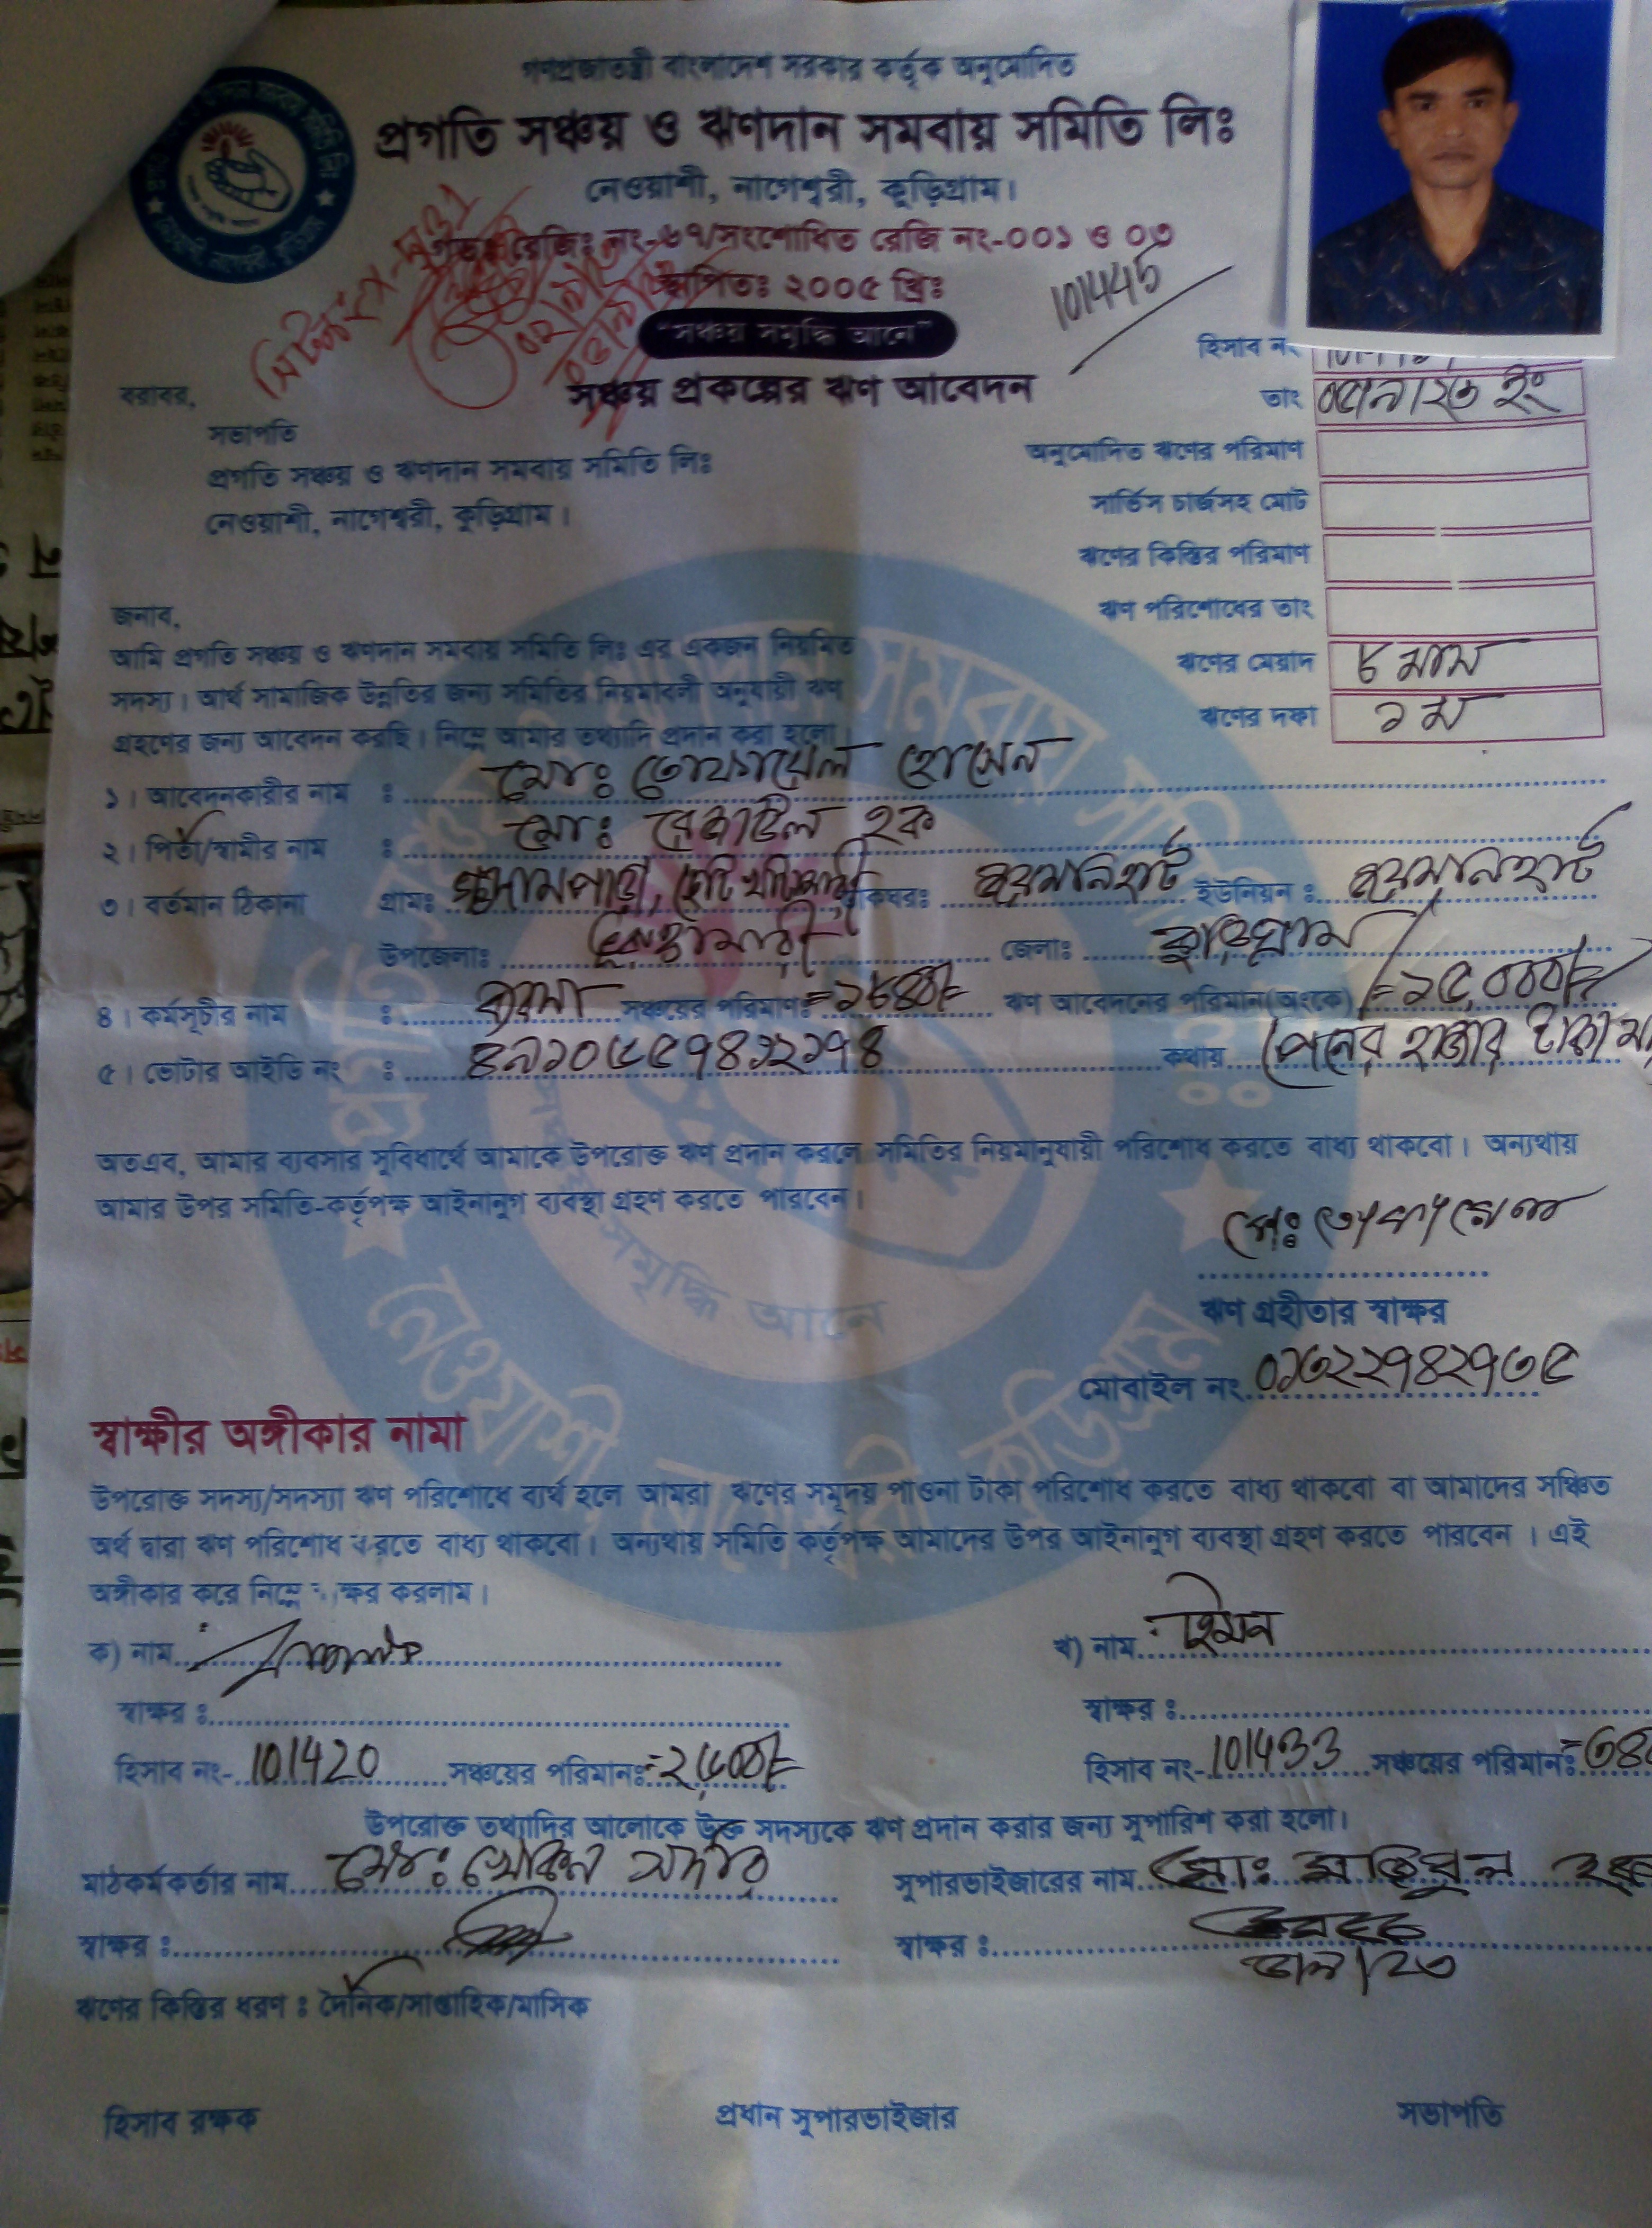 গণপ্রজাতন্ত্রী বাংলাদেশ সরকার কর্তৃক অনুমোদিত
প্রগতি সঞ্চয় ও ঋণদান সমবায় সমিতি লিঃ
নেওয়াশী, নাগেশ্বরী, কুড়িগ্রাম।
গভঃ রেজিঃ নং-৬৭/সংশোধিত রেজি নং-০০১ ও ০৩
স্থাপিতঃ ২০০৫ খ্রিঃ
101445
"সঞ্চয় সমৃদ্ধি আনে"
হিসাব নং
সঞ্চয় প্রকল্পের ঋণ আবেদন
তাং
বরাবর,
সভাপতি
প্রগতি সঞ্চয় ও ঋণদান সমবায় সমিতি লিঃ
নেওয়াশী, নাগেশ্বরী, কুড়িগ্রাম।
অনুমোদিত ঋণের পরিমাণ
সার্ভিস চার্জসহ মোট
ঋণের কিস্তির পরিমাণ
ঋণ পরিশোধের তাং
ঋণের মেয়াদ ৮ মাস
ঋণের দফা ১ম
জনাব,
আমি প্রগতি সঞ্চয় ও ঋণদান সমবায় সমিতি লিঃ এর একজন নিয়মিত
সদস্য। আর্থ সামাজিক উন্নতির জন্য সমিতির নিয়মাবলী অনুযায়ী ঋণ
গ্রহণের জন্য আবেদন করছি। নিম্নে আমার তথ্যাদি প্রদান করা হলো।
১। আবেদনকারীর নাম : মোঃ তোফায়েল হোসেন
২। পিতা/স্বামীর নাম : মোঃ রেজাউল হক
৩। বর্তমান ঠিকানা গ্রামঃ ডাকঘরঃ জয়মনিরহাট ইউনিয়ন : জয়মনিরহাট
উপজেলাঃ ভূরুঙ্গামারী জেলাঃ কুড়িগ্রাম
৪। কর্মসূচীর নাম : ব্যবসা সঞ্চয়ের পরিমাণঃ =১৮৪০/= ঋণ আবেদনের পরিমান(অংকে) =১৫,০০০/=
৫। ভোটার আইডি নং : ৪৯১০৬৫৫৭৪১২১৭৪ কথায় পনের হাজার টাকা মা
অতএব, আমার ব্যবসার সুবিধার্থে আমাকে উপরোক্ত ঋণ প্রদান করলে সমিতির নিয়মানুযায়ী পরিশোধ করতে বাধ্য থাকবো। অন্যথায়
আমার উপর সমিতি-কর্তৃপক্ষ আইনানুগ ব্যবস্থা গ্রহণ করতে পারবেন।
মোঃ তোফায়েল
ঋণ গ্রহীতার স্বাক্ষর
মোবাইল নং ০১৩২২৭৪২৭৩৫
স্বাক্ষীর অঙ্গীকার নামা
উপরোক্ত সদস্য/সদস্যা ঋণ পরিশোধে ব্যর্থ হলে আমরা ঋণের সমূদয় পাওনা টাকা পরিশোধ করতে বাধ্য থাকবো বা আমাদের সঞ্চিত
অর্থ দ্বারা ঋণ পরিশোধ করতে বাধ্য থাকবো। অন্যথায় সমিতি কর্তৃপক্ষ আমাদের উপর আইনানুগ ব্যবস্থা গ্রহণ করতে পারবেন । এই
অঙ্গীকার করে নিম্নে স্বাক্ষর করলাম।
ক) নাম খ) নাম : ইমন
স্বাক্ষর : স্বাক্ষর :
হিসাব নং- 101420 সঞ্চয়ের পরিমানঃ =২৫০০/= হিসাব নং- 101433 সঞ্চয়ের পরিমানঃ
উপরোক্ত তথ্যাদির আলোকে উক্ত সদস্যকে ঋণ প্রদান করার জন্য সুপারিশ করা হলো।
মাঠকর্মকর্তার নাম মোঃ সুপারভাইজারের নাম মোঃ
স্বাক্ষর : স্বাক্ষর :
ঋণের কিস্তির ধরণ : দৈনিক/সাপ্তাহিক/মাসিক
হিসাব রক্ষক প্রধান সুপারভাইজার সভাপতি